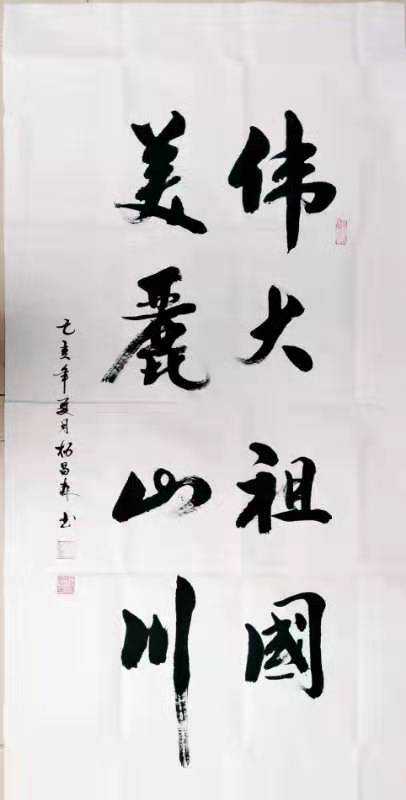 伟大祖國
美麗山川
己亥年夏月杨昌森书